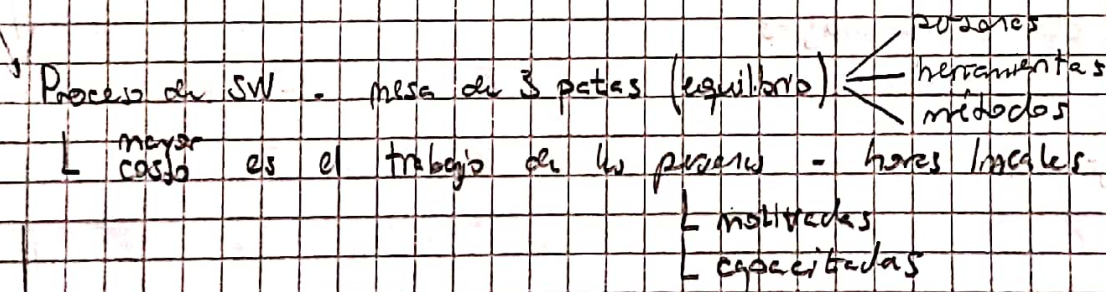 Proceso de SW - mesa de 3 patas (equilibrio)
herramientas
métodos
mayor
costo es el trabajo de las personas - horas lineales
motivadas
capacitadas